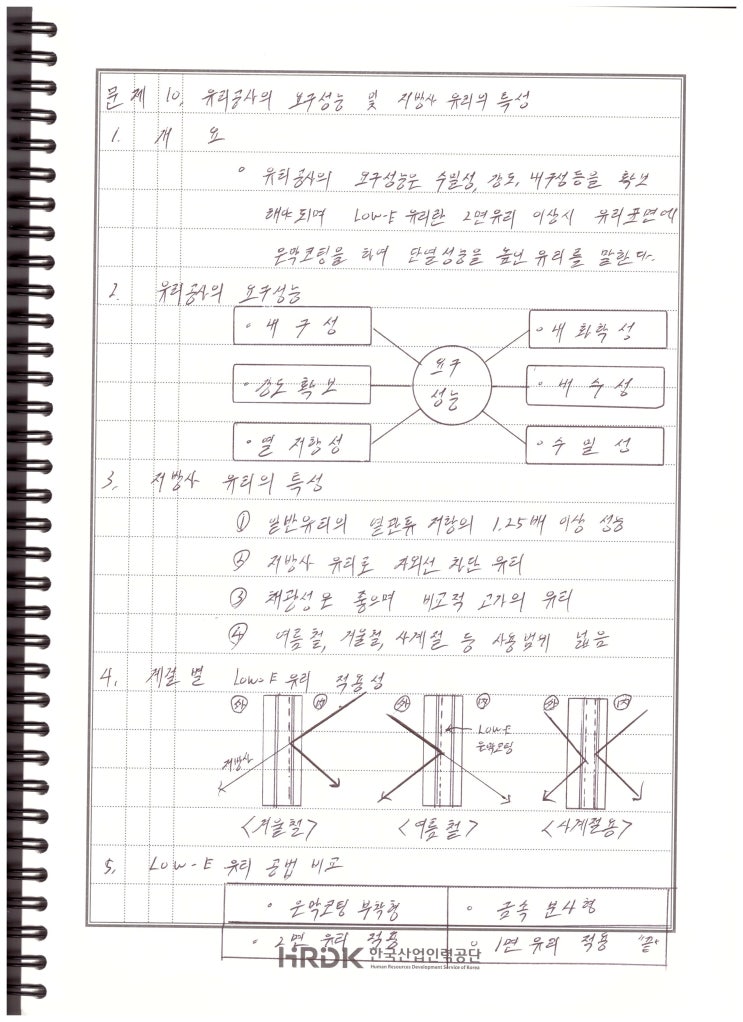 문제 10. 유리공사의 요구성능 및 저방사 유리의 특성
1. 개 요
◦ 유리공사의 요구성능은 수밀성, 강도, 내구성등을 확보
해야 되며 Low-E 유리란 2면유리 이상시 유리표면에
은막코팅을 하여 단열성능을 높인 유리를 말한다.
2. 유리공사의 요구성능
◦ 내 구 성
◦ 내 화학 성
◦ 강도 확보
요구
성능
◦ 내 수 성
◦ 열 저항성
◦ 수 밀 성
3. 저방사 유리의 특성
① 일반유리의 열관류 저항의 1.25배 이상 성능
② 저방사 유리로 자외선 차단 유리
③ 채광성은 좋으며 비교적 고가의 유리
④ 여름철, 겨울철, 사계절 등 사용범위 넓음
4. 계절별 Low-E 유리 적용성
저방사
Low-E
은막코팅
<겨울철> <여름철> <사계절용>
5. Low-E 유리 공법 비교
◦ 은막코팅 부착형 ◦ 금속 분사형
◦ 2면 유리 적용 ◦ 1면 유리 적용 "끝"
HRDK 한국산업인력공단
Human Resources Development Service of Korea